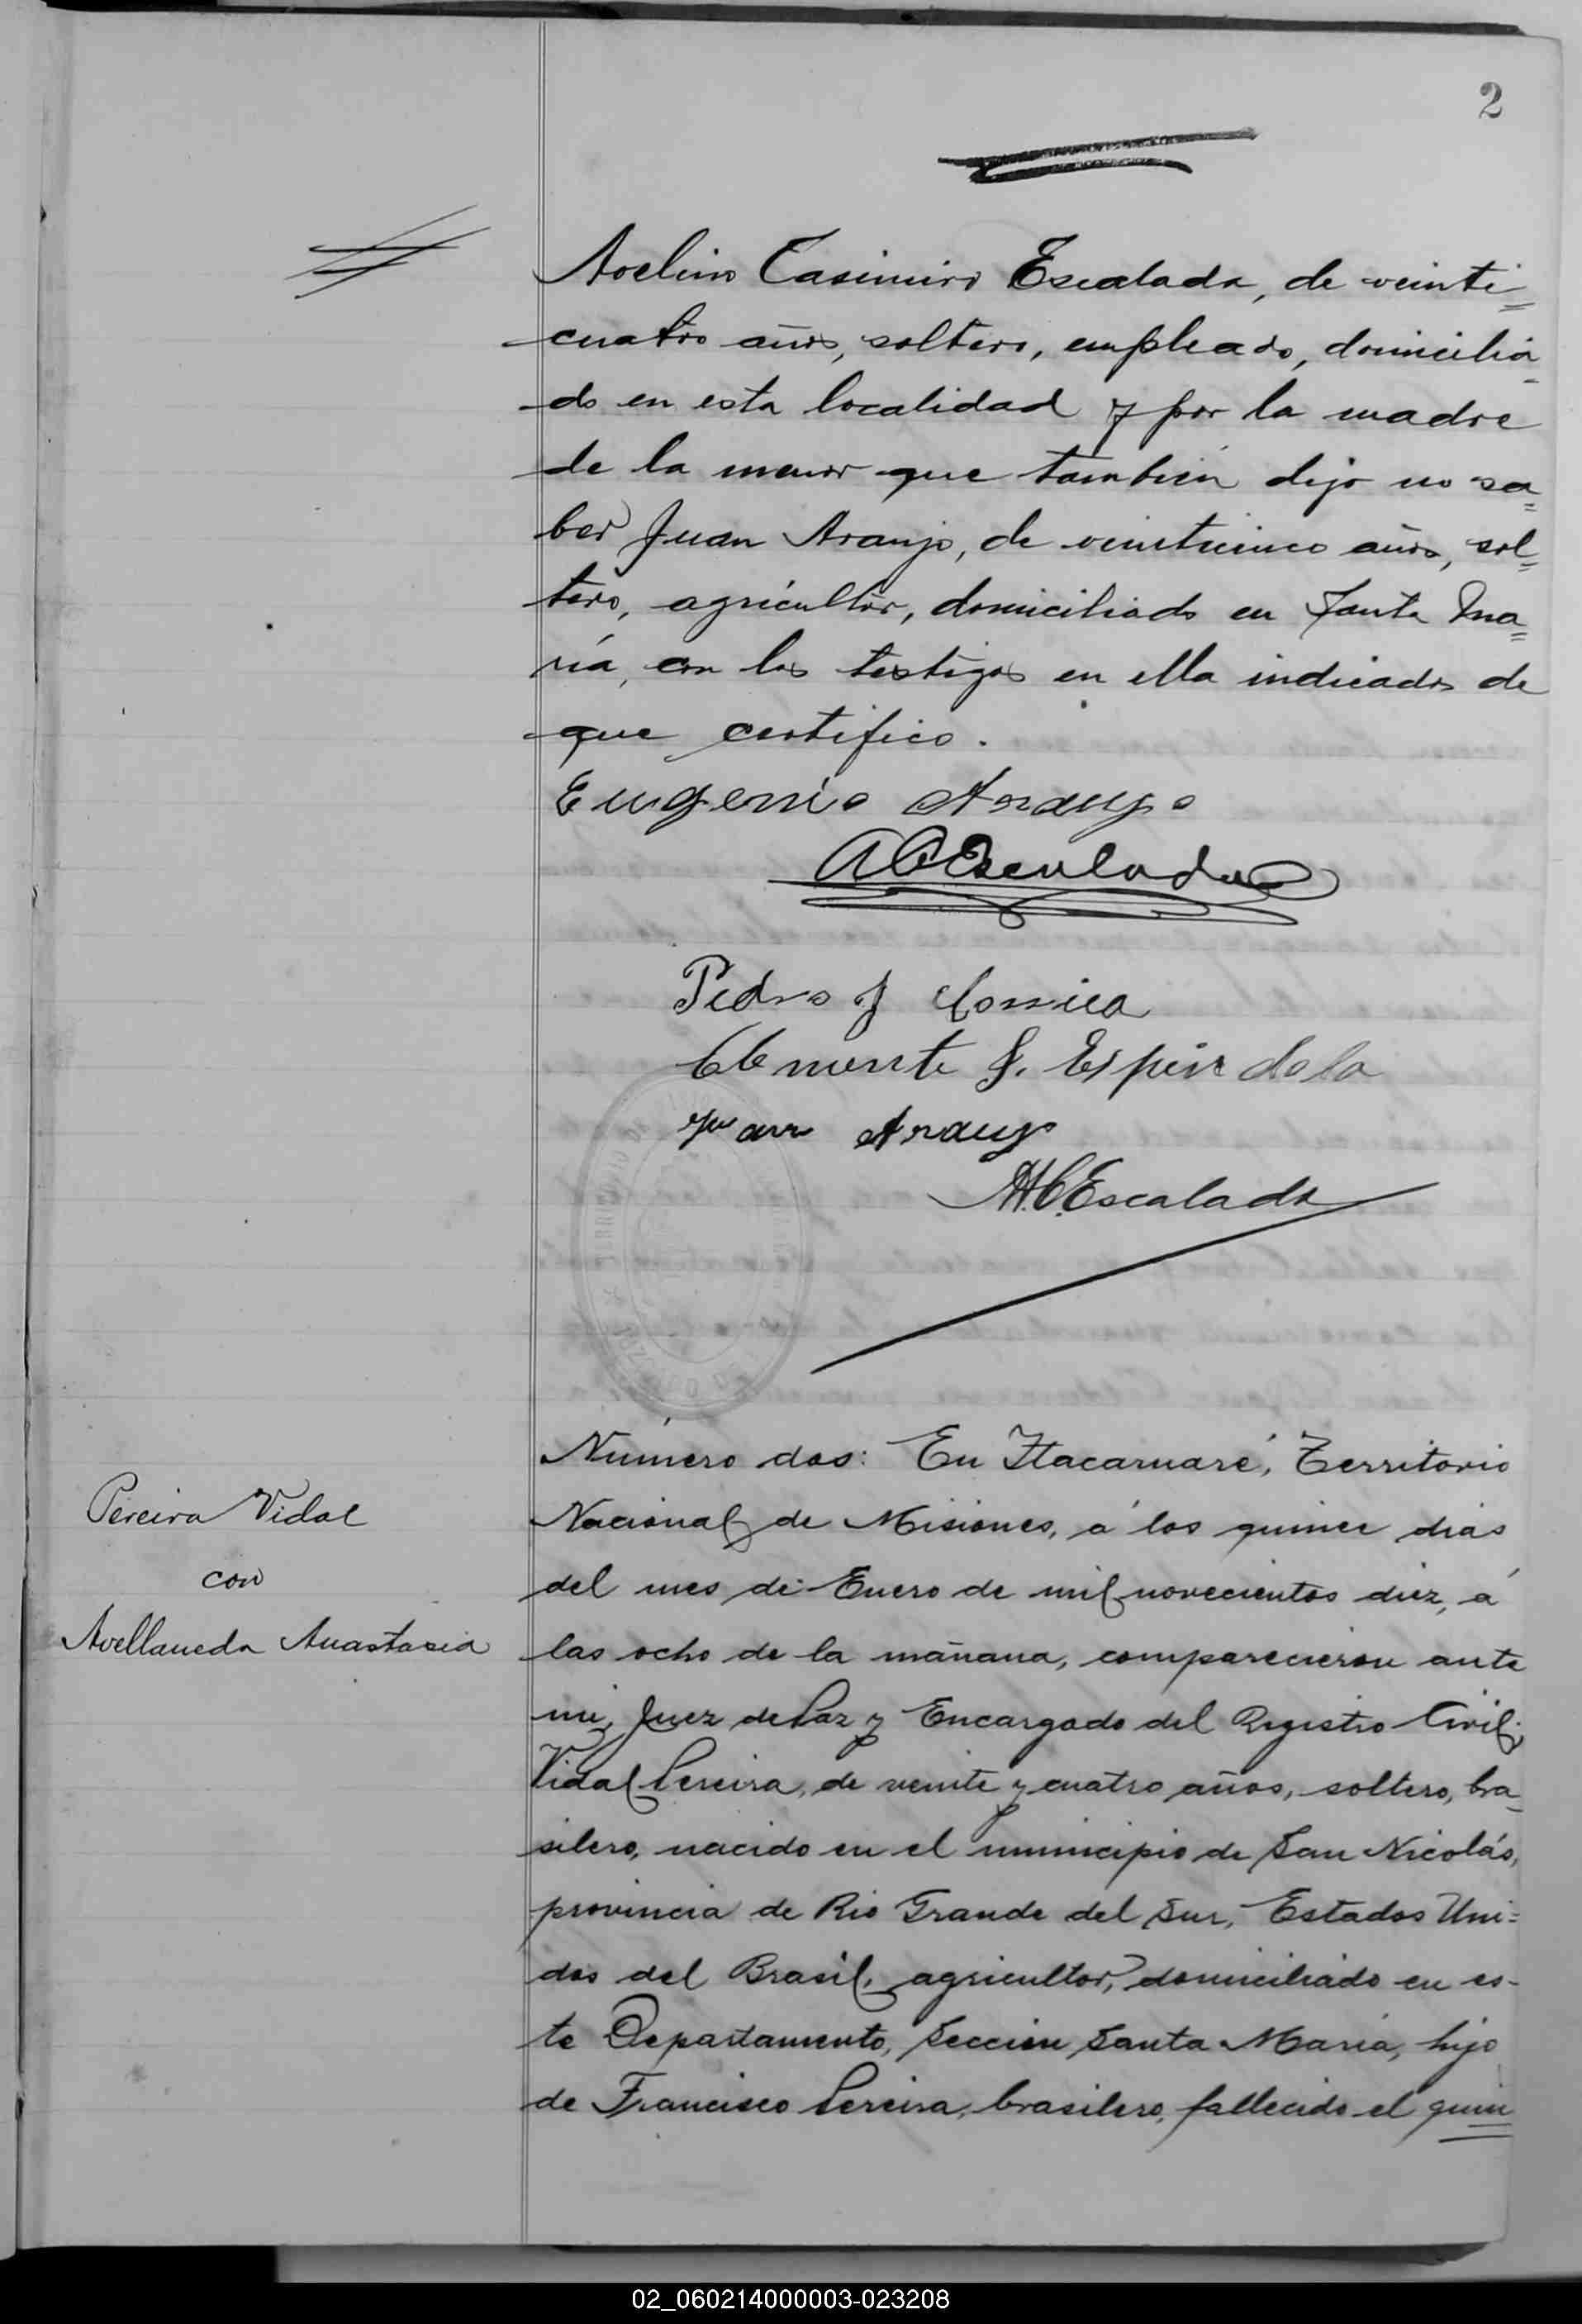 2
Avelino Casimiro Escalada, de veinti=
cuatro años, soltero, empleado, domicilia-
do en esta localidad y por la madre
de la menor que también dijo no sa=
ber Juan Araujo, de veinticinco años, sol=
tero, agricultor, domiciliado en Santa Ma=
ría, con los testigos en ella indicados de
que certifico.
Eugenio Araujo
A C Escalada
Pedro J
Clemente S. Espindola
Juan Araujo
A. C. Escalada
Pereira Vidal
con
Avellaneda Anastasia
Número dos: En Itacaruaré, Territorio
Nacional de Misiones, á los quince dias
del mes de Enero de mil novecientos diez, á
las ocho de la mañana, comparecieron ante
mi, Juez de Paz y Encargado del Registro Civil;
Vidal Pereira, de veinte y cuatro años, soltero, bra=
silero, nacido en el municipio de San Nicolás,
provincia de Rio Grande del Sur, Estados Uni=
dos del Brasil, agricultor, domiciliado en es-
te Departamento, Sección Santa Maria, hijo
de Francisco Pereira, brasilero, fallecido el quin
02_060214000003-023208